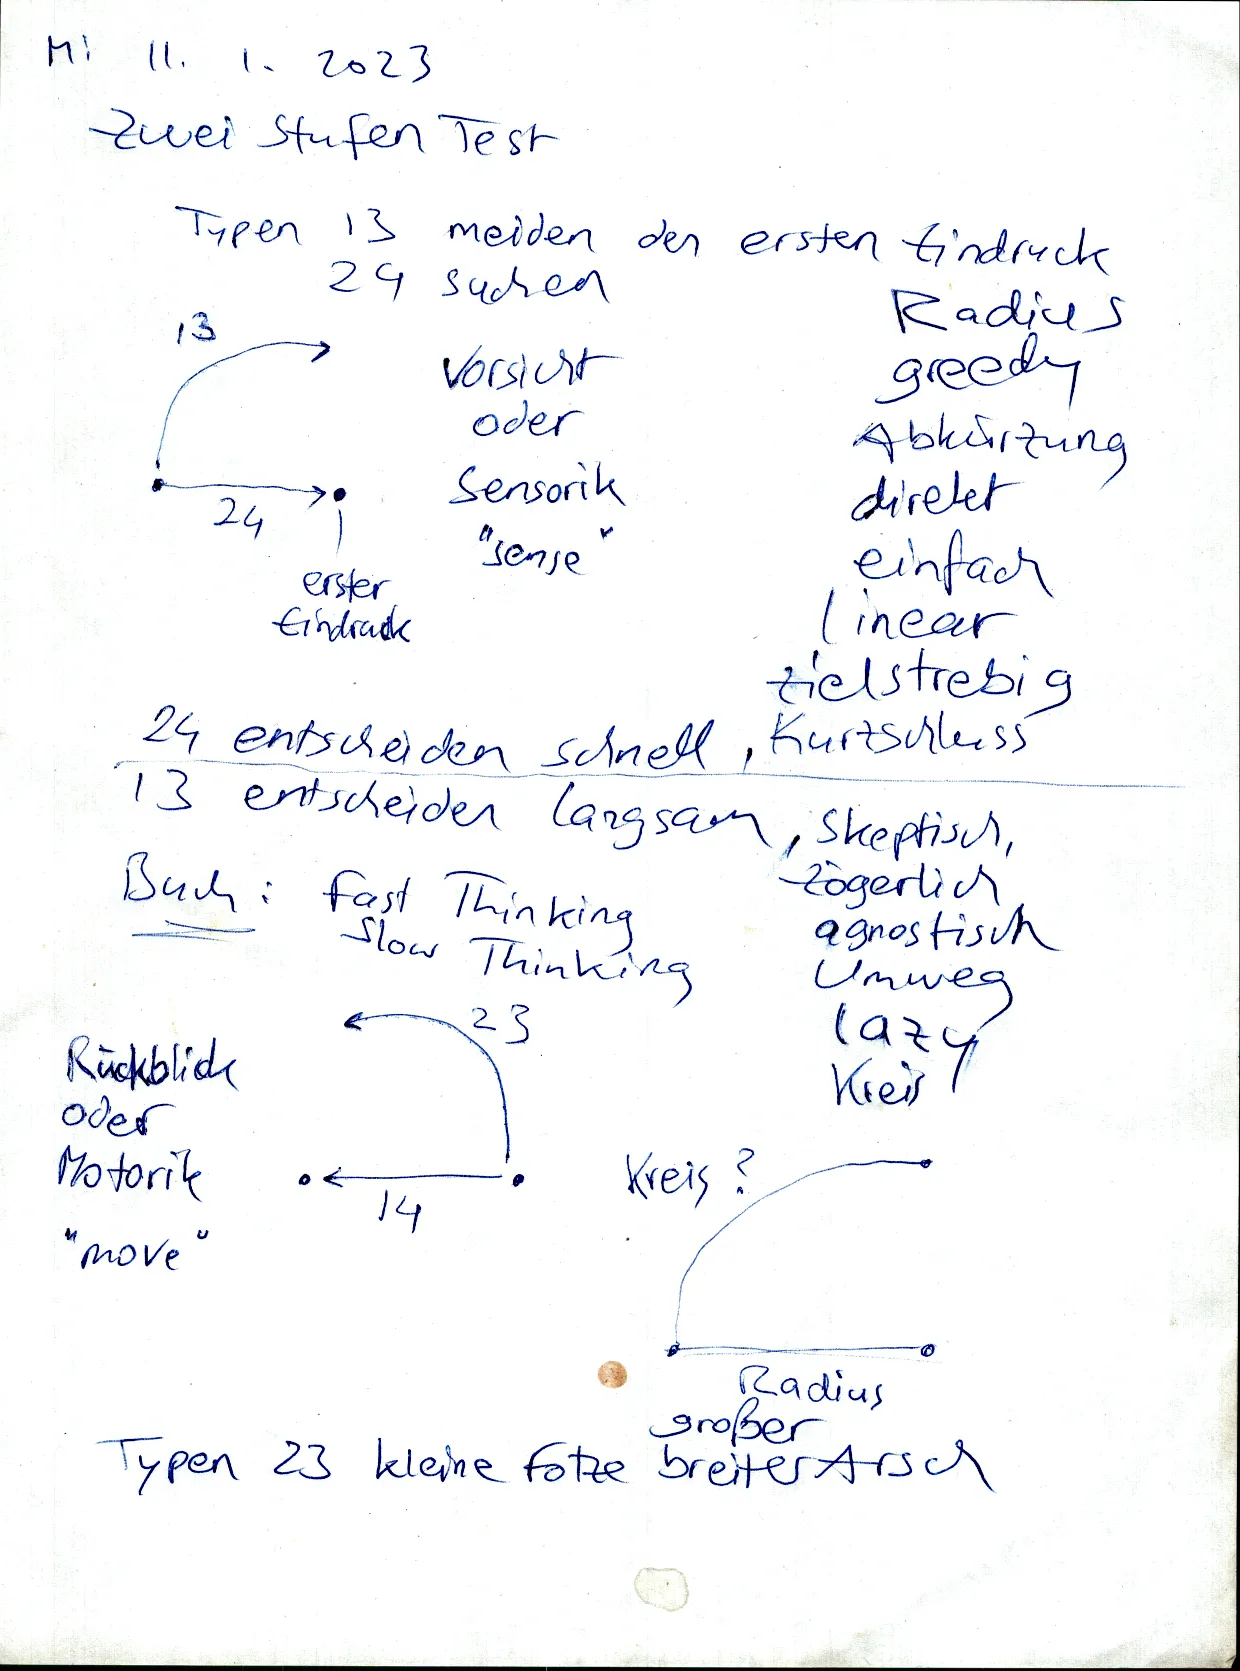 Mi 11. 1. 2023
Zwei Stufen Test
Typen 13 meiden den ersten Eindruck
24 suchen
Radius
13
greedy
Vorsicht
oder
Abkürzung
Sensorik
direkt
24
"sense"
einfach
erster
Eindruck
linear
zielstrebig
24 entscheiden schnell, Kurzschluss
13 entscheiden langsam, skeptisch,
zögerlich
Buch: Fast Thinking
Slow Thinking
agnostisch
Umweg
23
lazy
Kreis
Rückblick
oder
Motorik
14
"move"
Kreis?
Radius
großer
Typen 23 kleine Fotze breiter Arsch